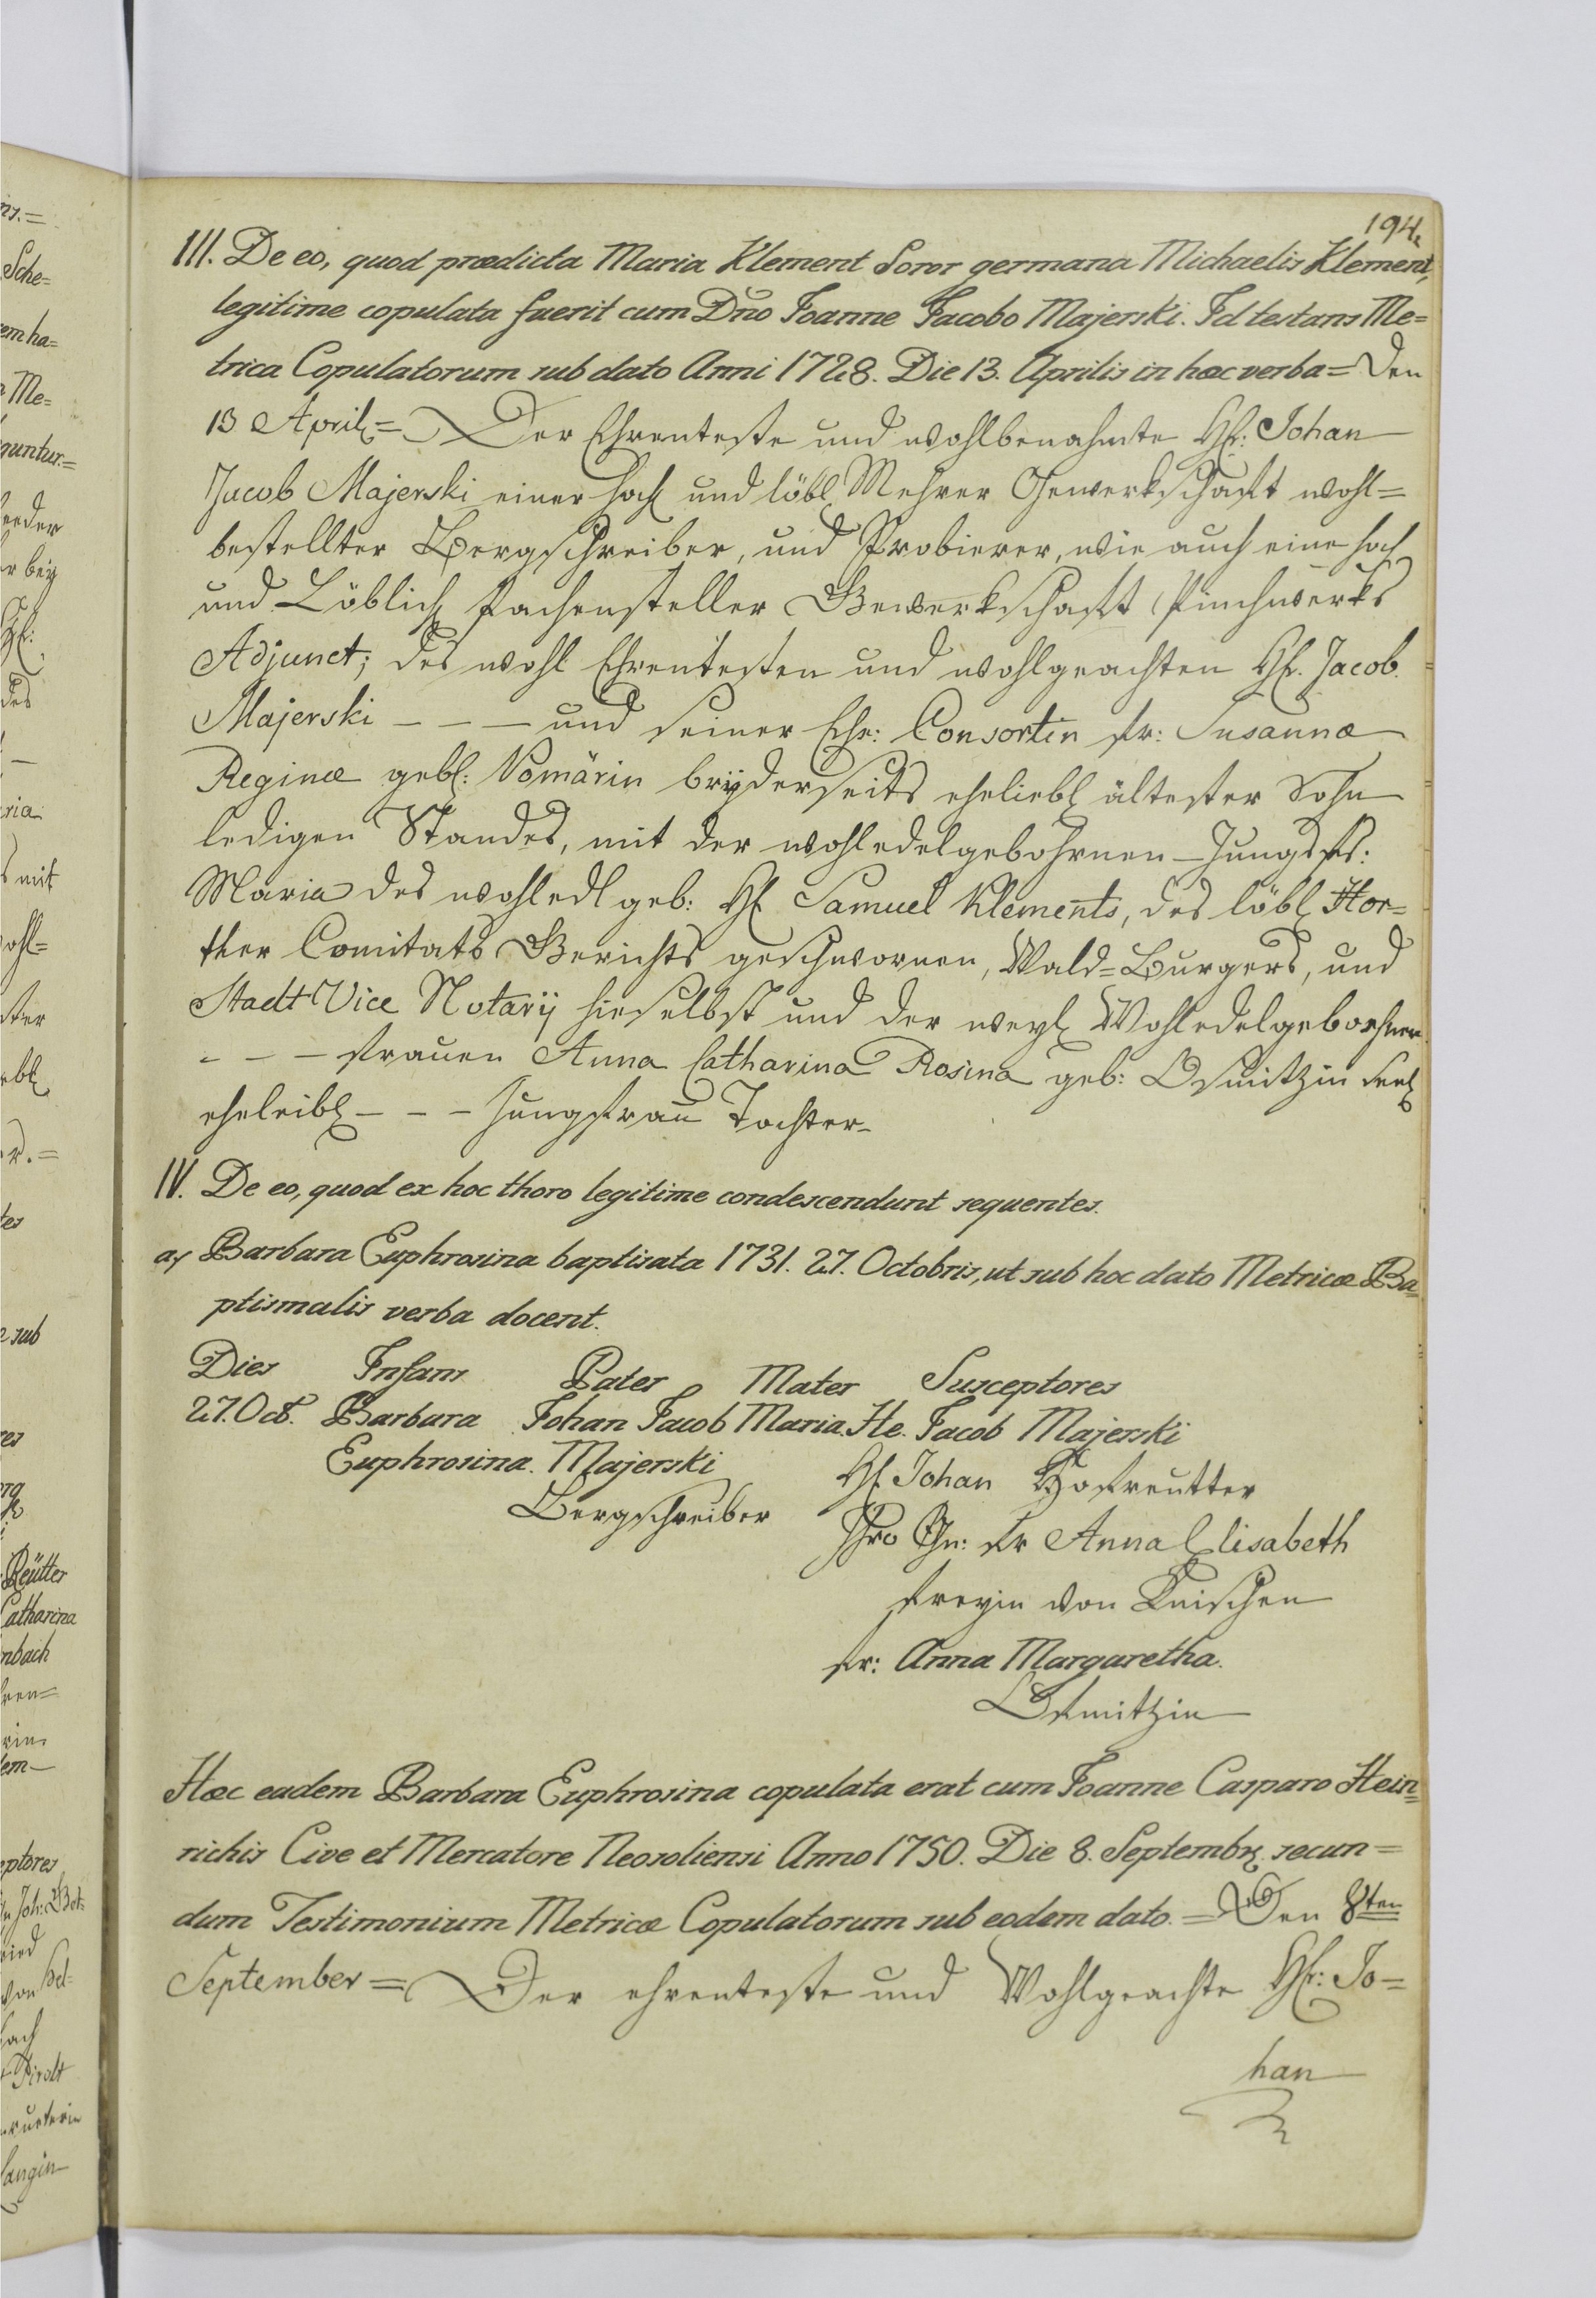 194.
III. De eo, quod prædicta Maria Klement Soror germana Michaelis Klement,
legitime copulata fuerit cum Dno Joanne Jacobo Majerski. Id testans Me=
trica Copulatorum sub dato Anni 1728. Die 13. Aprilis in hæc verba = Den
13 April = Der Ehrenteste und wohlbenahmte H: Johan
Jacob Majerski einer hoch und löbl Mehrer Gewerkschafft wohl=
bestellter Bergschreiber, und Probierer, wie auch eine hoch
und Löblich Pachensteller Gewerkschafft Puchwerks
Adjunct; des wohl Ehrentesten und wohlgeachten H. Jacob
Majerski - - - und seiner Ehr: Consortin fr: Susannæ
Reginæ gebl: Nomärin beyderseits eheliebl ältester Sohn
ledigen Standes, mit der wohledelgebohrnen Jungsfr:
Maria des wohledl geb: H Samuel Klements, des löbl Hor=
ther Comitats Gerichts geschwornen, Wald=Burgers, und
Stadt Vice Notarij hieselbst und der weyl Wohledelgebohrner
- - - frauen Anna Catharina Rosina geb: Osmitzin seel
eheleibl - - - Jungfrau Tochter.
IV. De eo, quod ex hoc thoro legitime condescendunt sequentes.
a, Barbara Euphrosina baptisata 1731. 27. Octobris, ut sub hoc dato Metricæ Ba=
ptismalis verba docent.
Dies Infans Pater Mater Susceptores
27. Oct. Barbara Johan Jacob Maria. He. Jacob Majerski
Euphrosina. Majerski H Johan Hofreutter
Bergschreiber Ihro Gn: fr Anna Elisabeth
freyin von
fr: Anna Margaretha.
Osmitzin
Hæc eadem Barbara Euphrosina copulata erat cum Joanne Casparo Hein=
richis Cive et Mercatore Neosoliensi Anno 1750. Die 8. Septembr. secun=
dum Testimonium Metricæ Copulatorum sub eodem dato. = Den 8ten
September = Der ehrenteste und Wohlgeachte H: Jo=
han